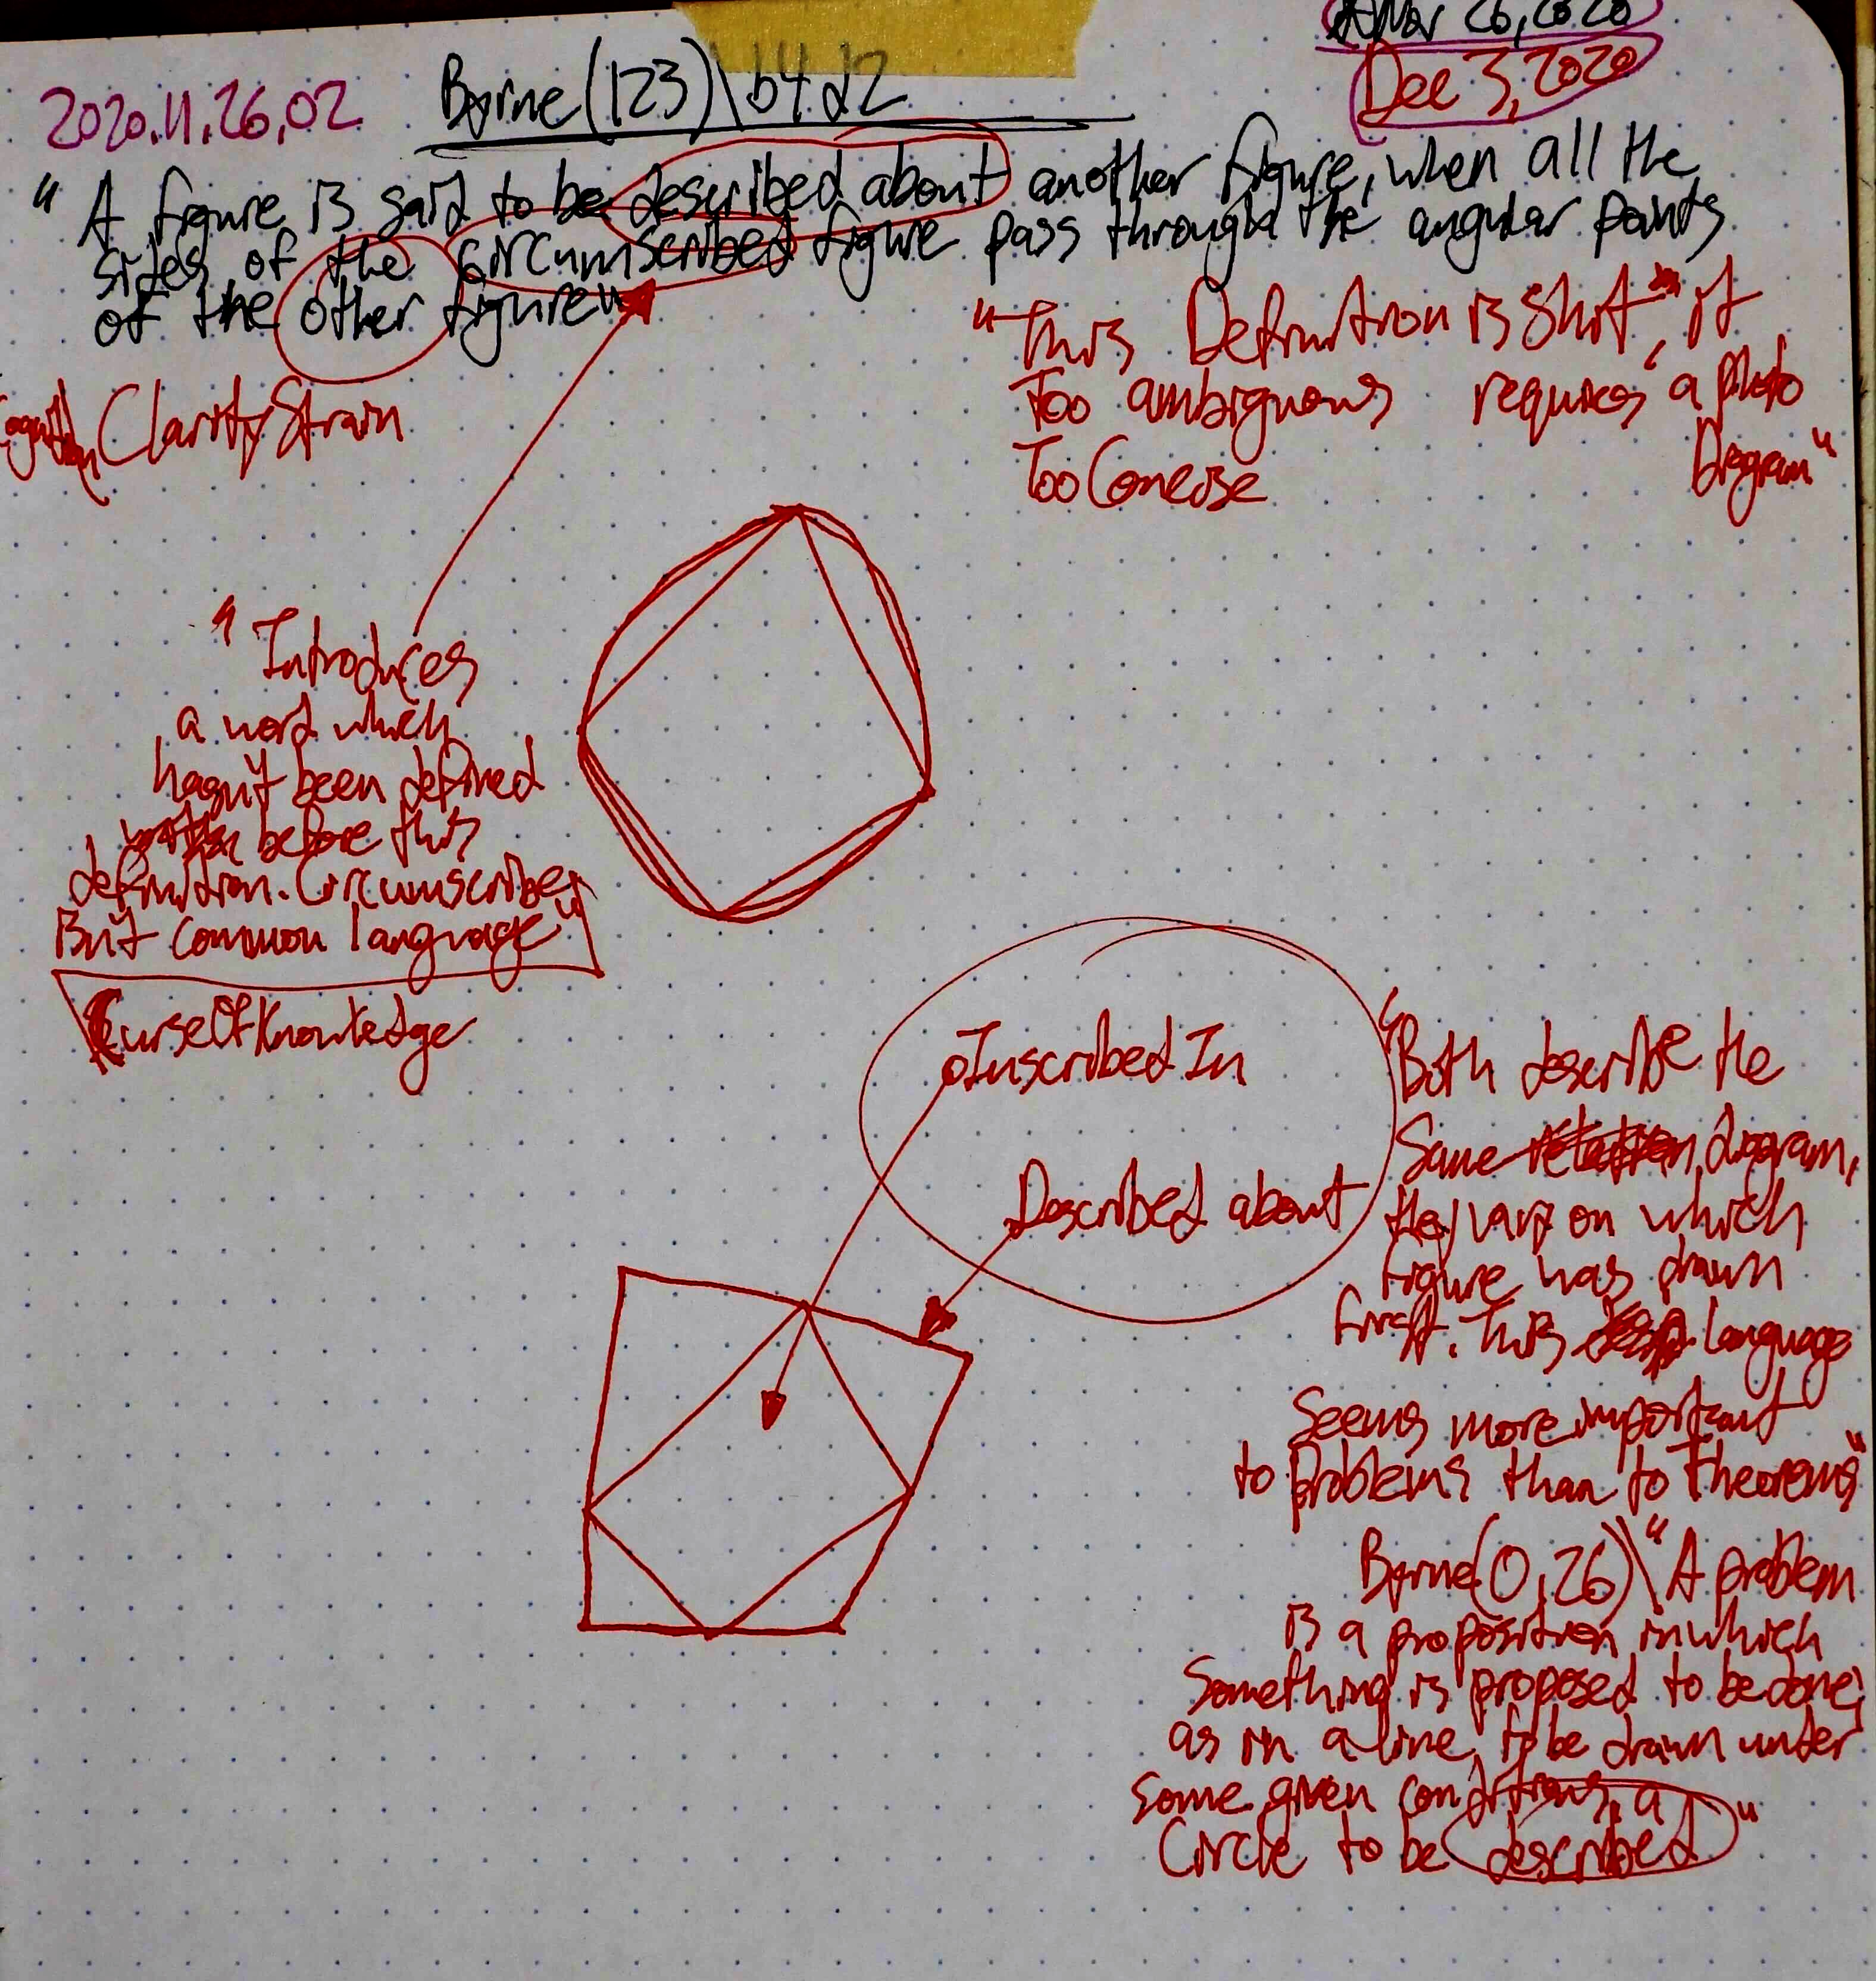 Nov 26, 2020
Dec 3, 2020
2020.11.26.02 Byrne(123)\b4.d2
"A figure is said to be described about another figure, when all the
sides of the circumscribed figure pass through the angular points
of the other figure"
Clarity Strain
"This Definition is Shit", it
Too ambiguous requires "a photo
Too Concise Diagram"
"Introduces
a word which
hasn't been defined
before this
definition. Circumscribe,
But common language"
CurseOfKnowledge
Inscribed In
Described about
"Both describe the
Same diagram,
they vary on which
figure was drawn
first. This language
Seems more important
to Problems than to Theorems"
Byrne(0,26)\"A problem
is a proposition in which
Something is proposed to be done;
as in a line to be drawn under
some given conditions, a
Circle to be described"